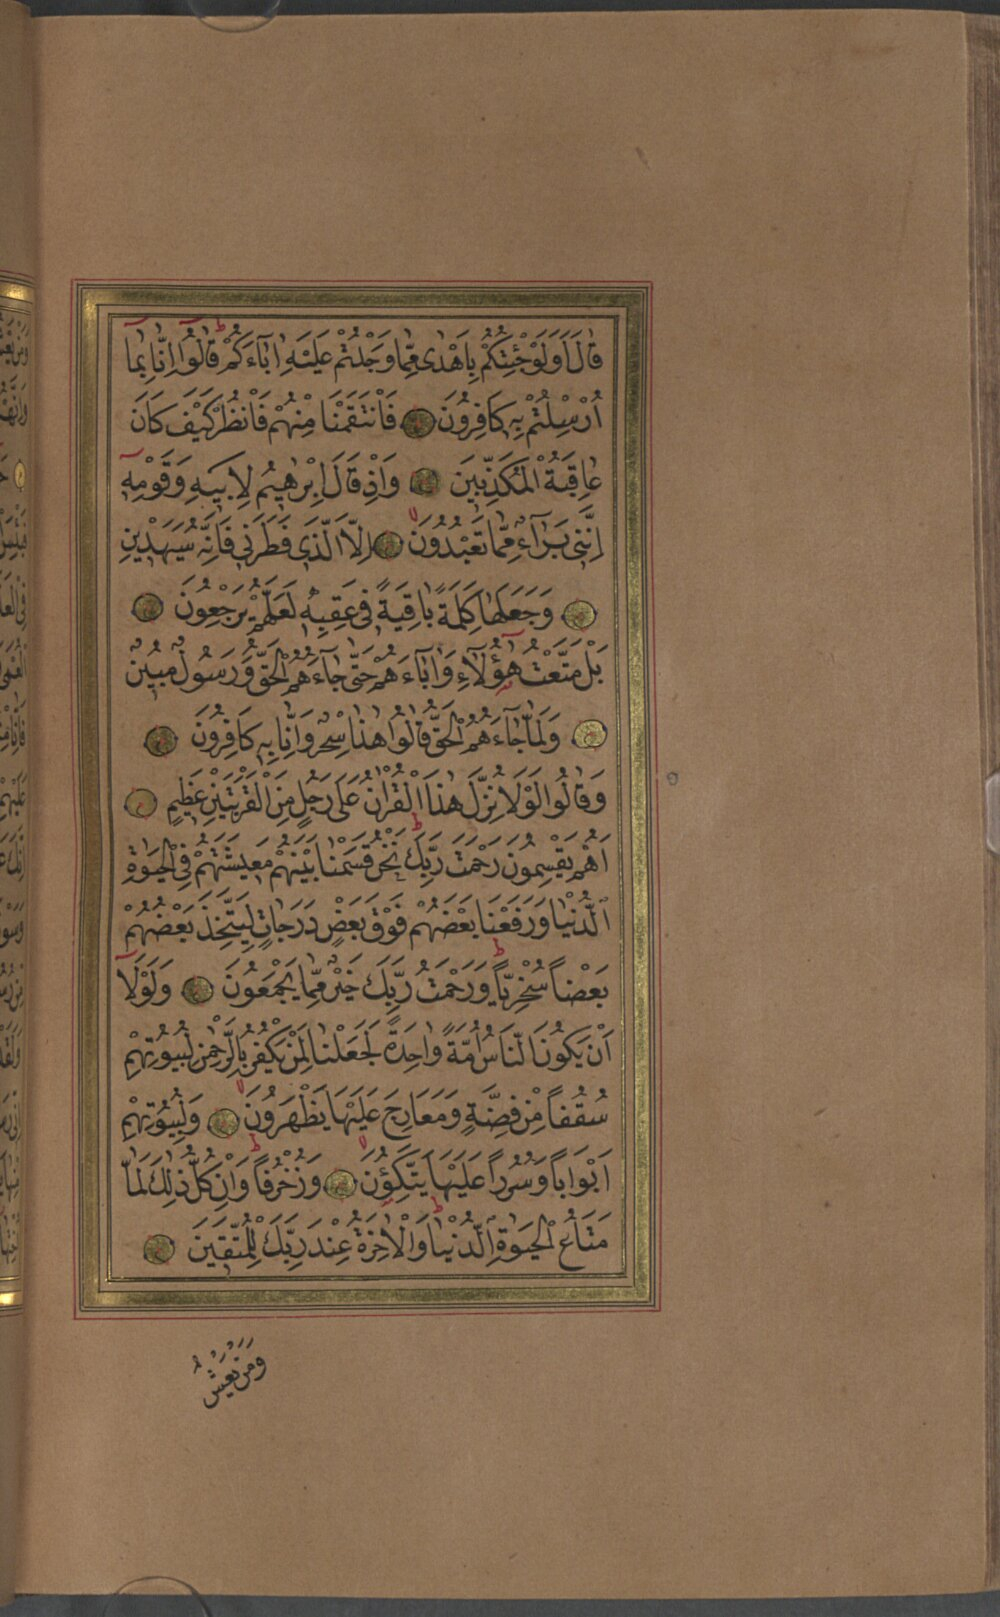 قَالَ اَوَلَوْ جِئْتُكُمْ بِاَهْدٰى مِمَّا وَجَدْتُمْ عَلَيْهِ اٰبَٓاءَكُمْ قَالُٓوا اِنَّا بِمَٓا
اُرْسِلْتُمْ بِهِ كَافِرُونَ فَانْتَقَمْنَا مِنْهُمْ فَانْظُرْ كَيْفَ كَانَ
عَاقِبَةُ الْمُكَذِّبِينَ وَاِذْ قَالَ اِبْرٰهِيمُ لِاَبِيهِ وَقَوْمِهِٓ
اِنَّنِى بَرَٓاءٌ مِمَّا تَعْبُدُونَ اِلَّا الَّذِى فَطَرَنِى فَاِنَّهُ سَيَهْدِينِ
وَجَعَلَهَا كَلِمَةً بَاقِيَةً فِى عَقِبِهِ لَعَلَّهُمْ يَرْجِعُونَ
بَلْ مَتَّعْتُ هٰٓؤُلَٓاءِ وَاٰبَٓاءَهُمْ حَتّٰى جَٓاءَهُمُ الْحَقُّ وَرَسُولٌ مُبِينٌ
وَلَمَّا جَٓاءَهُمُ الْحَقُّ قَالُوا هٰذَا سِحْرٌ وَاِنَّا بِهِ كَافِرُونَ
وَقَالُوا لَوْلَا نُزِّلَ هٰذَا الْقُرْاٰنُ عَلٰى رَجُلٍ مِنَ الْقَرْيَتَيْنِ عَظِيمٍ
اَهُمْ يَقْسِمُونَ رَحْمَتَ رَبِّكَ نَحْنُ قَسَمْنَا بَيْنَهُمْ مَعِيشَتَهُمْ فِى الْحَيٰوةِ
الدُّنْيَا وَرَفَعْنَا بَعْضَهُمْ فَوْقَ بَعْضٍ دَرَجَاتٍ لِيَتَّخِذَ بَعْضُهُمْ
بَعْضاً سُخْرِيّاً وَرَحْمَتُ رَبِّكَ خَيْرٌ مِمَّا يَجْمَعُونَ وَلَوْلَٓا
اَنْ يَكُونَ النَّاسُ اُمَّةً وَاحِدَةً لَجَعَلْنَا لِمَنْ يَكْفُرُ بِالرَّحْمٰنِ لِبُيُوتِهِمْ
سُقُفاً مِنْ فِضَّةٍ وَمَعَارِجَ عَلَيْهَا يَظْهَرُونَ وَلِبُيُوتِهِمْ
اَبْوَاباً وَسُرُراً عَلَيْهَا يَتَّكِؤُنَ وَزُخْرُفاً وَاِنْ كُلُّ ذٰلِكَ لَمَّا
مَتَاعُ الْحَيٰوةِ الدُّنْيَا وَالْاٰخِرَةُ عِنْدَ رَبِّكَ لِلْمُتَّقِينَ
وَمَنْ يَعْشُ